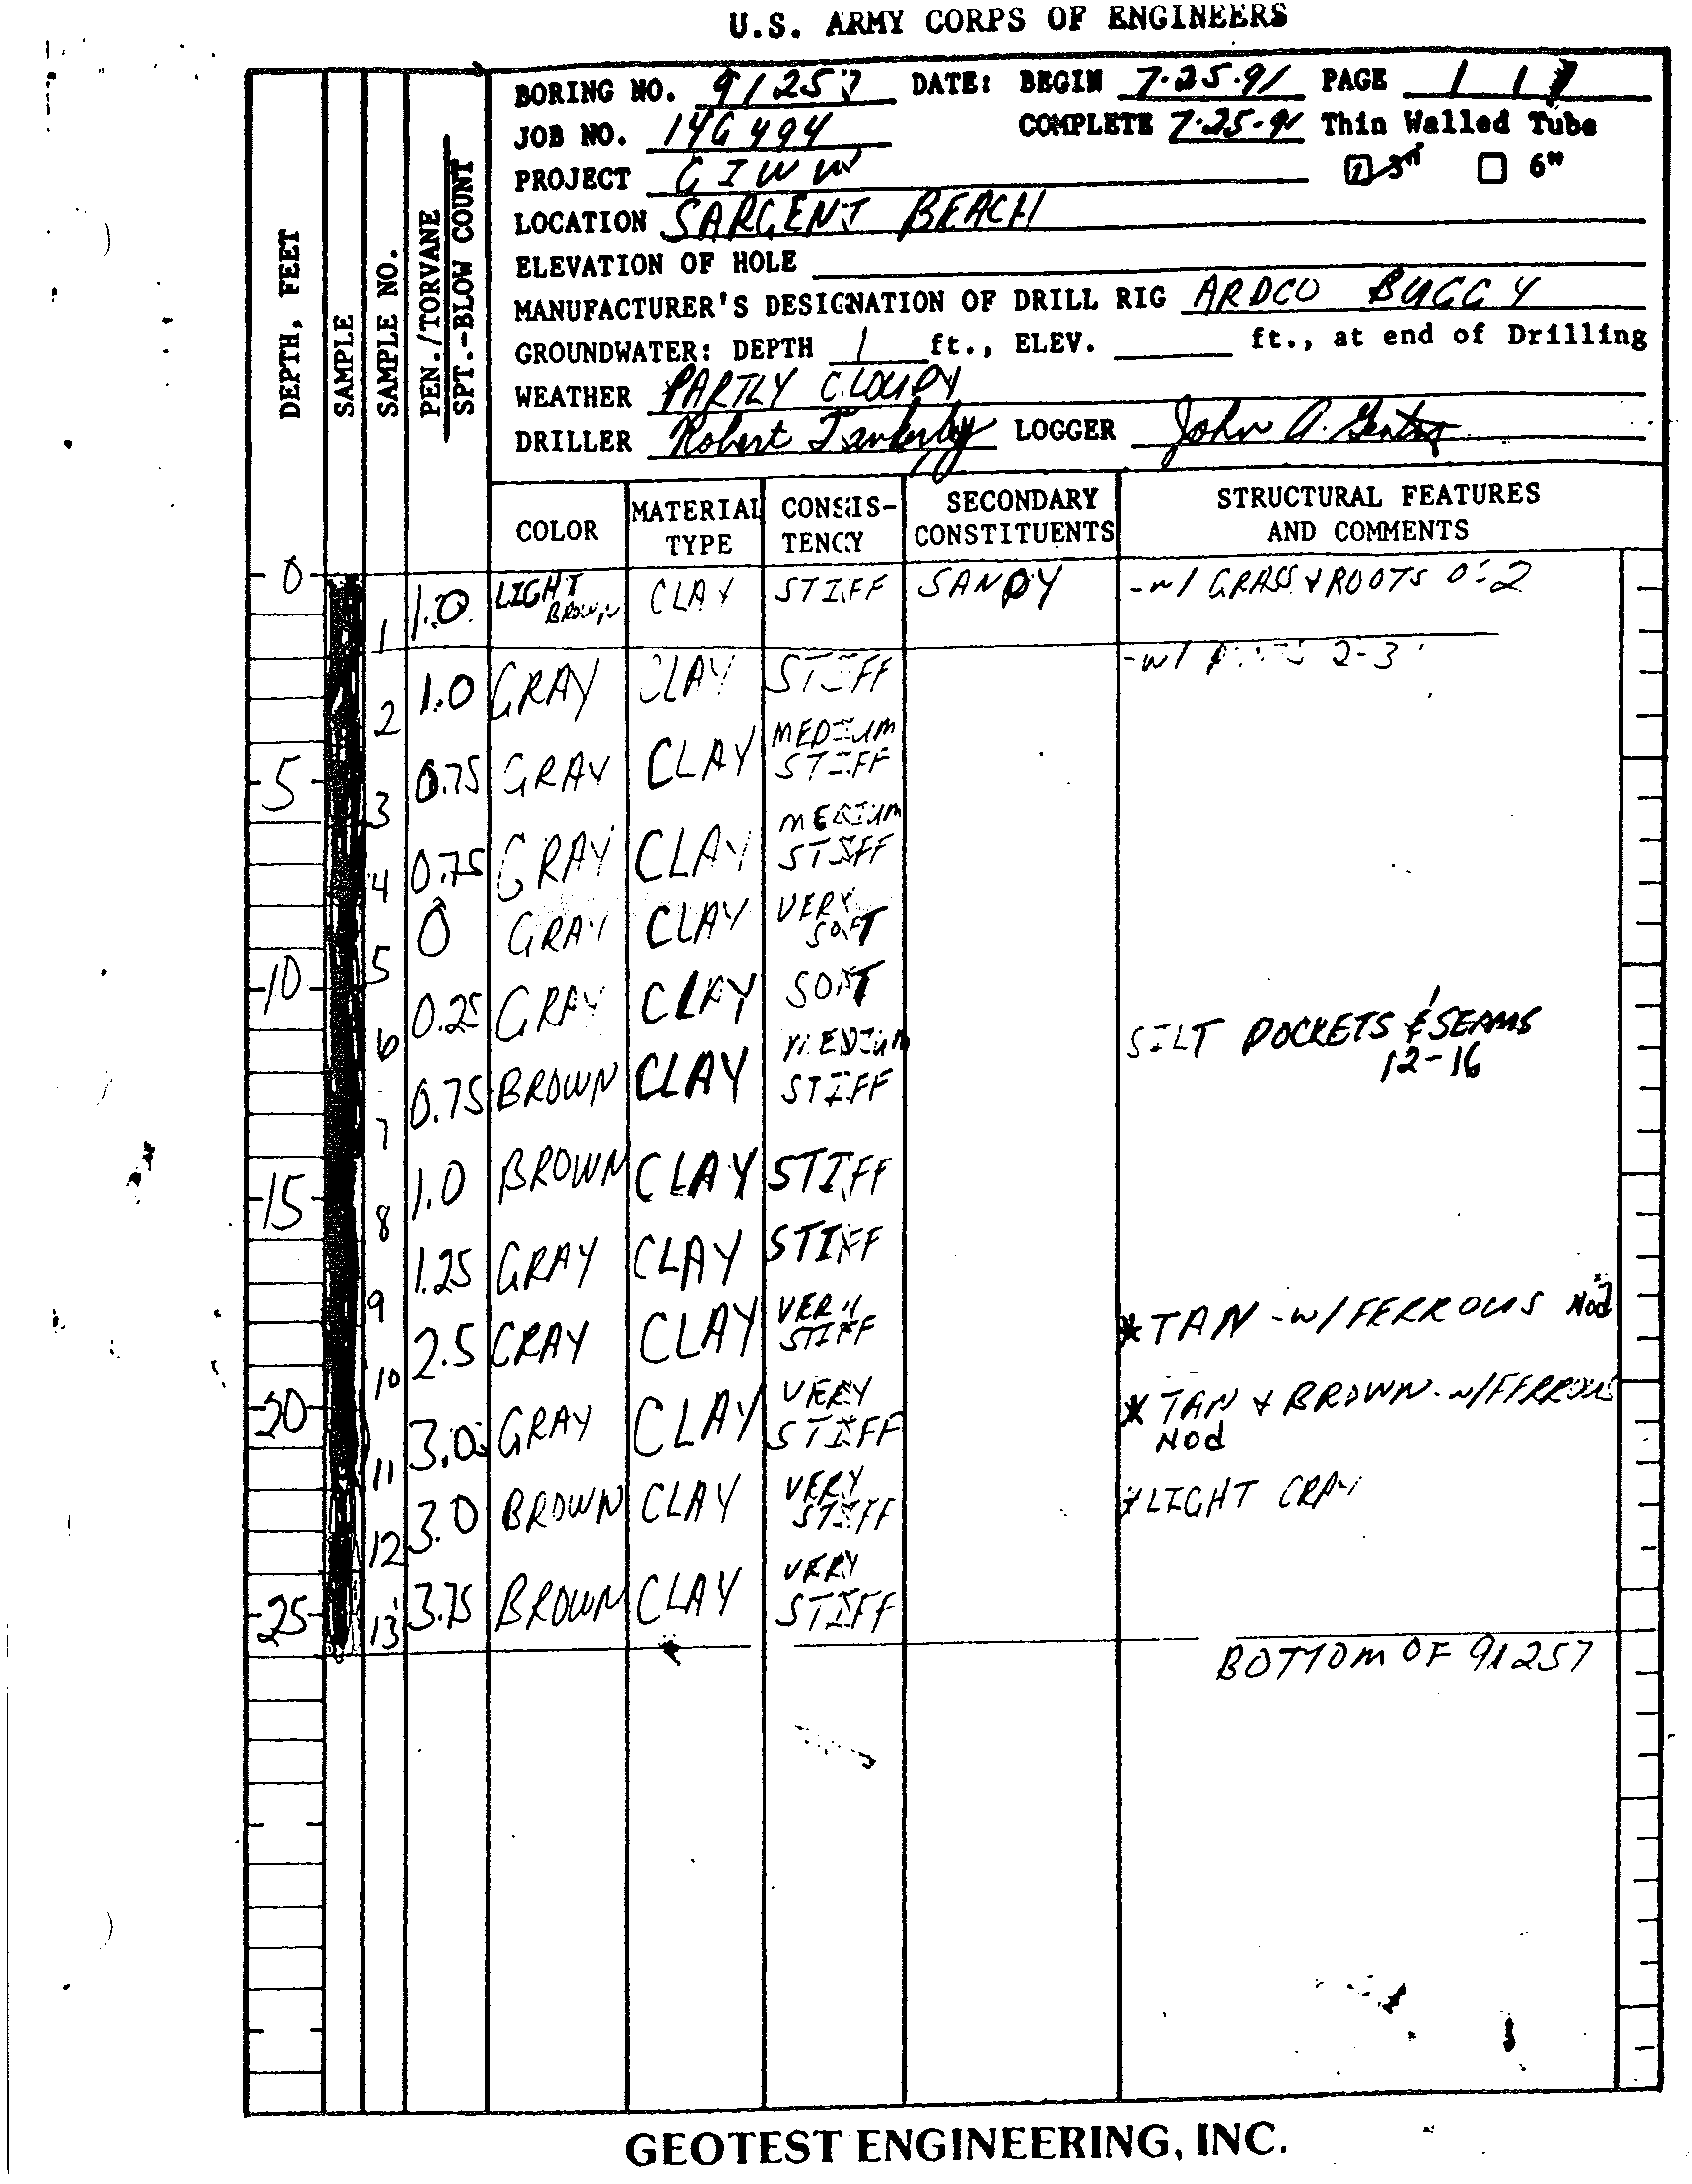 U.S. ARMY CORPS OF ENGINEERS
DEPTH, FEET
SAMPLE
SAMPLE NO.
PEN./TORVANE
SPT.-BLOW COUNT
BORING NO. 91257 DATE: BEGIN 7-25-91 PAGE 1 1
JOB NO. 14G494 COMPLETE 7-25-91 Thin Walled Tube
PROJECT GIWW 3" 6"
LOCATION SARGENT BEACH
ELEVATION OF HOLE
MANUFACTURER'S DESIGNATION OF DRILL RIG ARDCO BUGGY
GROUNDWATER: DEPTH 1 ft., ELEV. ft., at end of Drilling
WEATHER PARTLY CLOUDY
DRILLER Robert LOGGER John A.
COLOR MATERIAL TYPE CONSIS-TENCY SECONDARY CONSTITUENTS STRUCTURAL FEATURES AND COMMENTS
0 1 1.0 LIGHT BROWN CLAY STIFF SANDY -w/ GRASS & ROOTS 0-2
2 1.0 GRAY CLAY STIFF -w/ 2-3'
5 3 0.75 GRAY CLAY MEDIUM STIFF
4 0.75 GRAY CLAY MEDIUM STIFF
5 0 GRAY CLAY VERY SOFT
10 6 0.25 GRAY CLAY SOFT SILT POCKETS & SEAMS 12-16
7 0.75 BROWN CLAY MEDIUM STIFF
15 8 1.0 BROWN CLAY STIFF
9 1.25 GRAY CLAY STIFF
10 2.5 GRAY CLAY VERY STIFF * TAN -w/ FERROUS Nod
20 11 3.0 GRAY CLAY VERY STIFF * TAN & BROWN -w/ FERROUS Nod
12 3.0 BROWN CLAY VERY STIFF * LIGHT GRAY
25 13 3.75 BROWN CLAY VERY STIFF
BOTTOM OF 91257
GEOTEST ENGINEERING, INC.